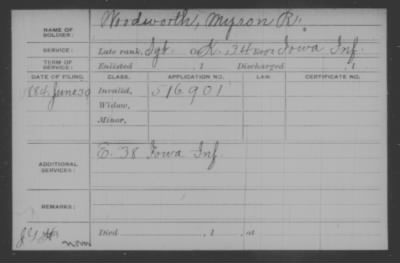 NAME OF SOLDIER: Woodworth, Myron R.
SERVICE: Late rank, Sgt. Co. K, 34 Reg't Iowa Inf.
TERM OF SERVICE: Enlisted , 1 Discharged , 1
DATE OF FILING. CLASS. APPLICATION NO. LAW. CERTIFICATE NO.
1884 June 30 Invalid, 516.901
Widow,
Minor,
ADDITIONAL SERVICES: E. 38 Iowa Inf.
REMARKS:
Died , 1 , at